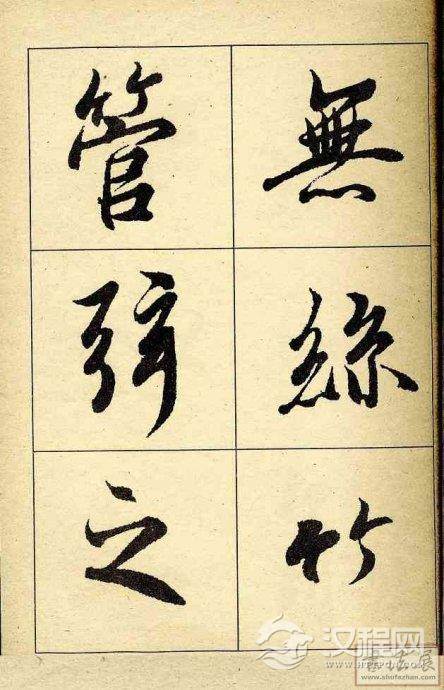 無絲竹
管弦之
汉程网
HTTPCN.COM
www.shufazhan.com